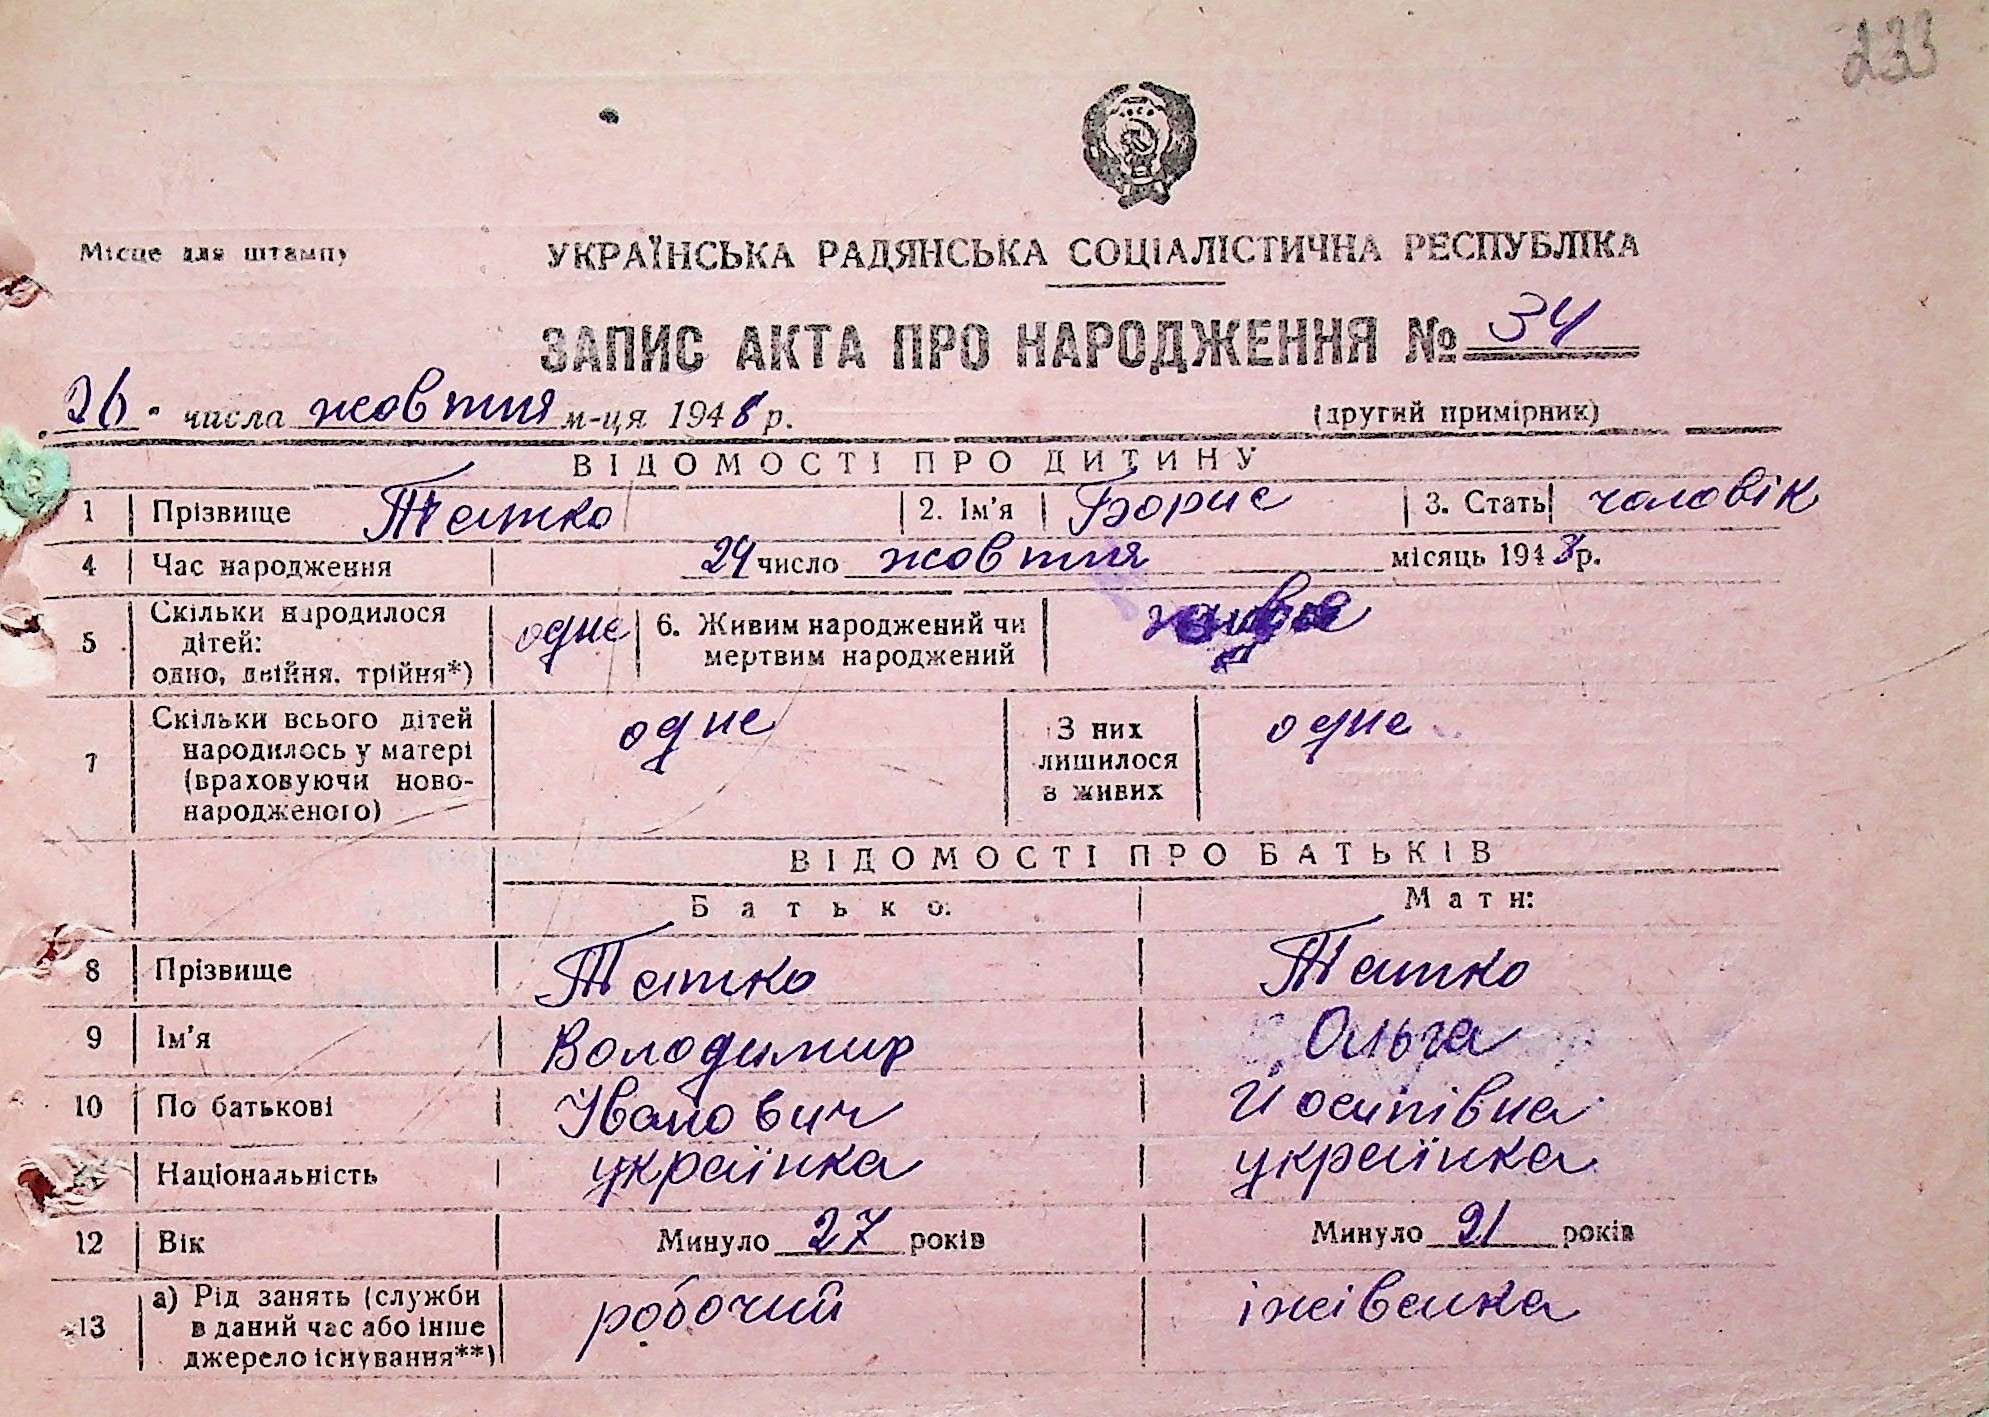 233
Місце для штампу
УКРАЇНСЬКА РАДЯНСЬКА СОЦІАЛІСТИЧНА РЕСПУБЛІКА
ЗАПИС АКТА ПРО НАРОДЖЕННЯ № 34
26 числа жовтня м-ця 1948 р.
(другий примірник)
ВІДОМОСТІ ПРО ДИТИНУ
1 Прізвище Татко 2. Ім'я Борис 3. Стать чоловік
4 Час народження 24 число жовтня місяць 1948 р.
5 Скільки народилося дітей: одно, двійня, трійня*) одне 6. Живим народжений чи мертвим народжений
7 Скільки всього дітей народилось у матері (враховуючи ново-народженого) одне З них лишилося в живих одне
ВІДОМОСТІ ПРО БАТЬКІВ
Батько: Мати:
8 Прізвище Татко Татко
9 Ім'я Володимир Ольга
10 По батькові Іванович Йосипівна
Національність українка українка
12 Вік Минуло 27 років Минуло 21 років
13 а) Рід занять (служби в даний час або інше джерело існування**) робочий іжівенка